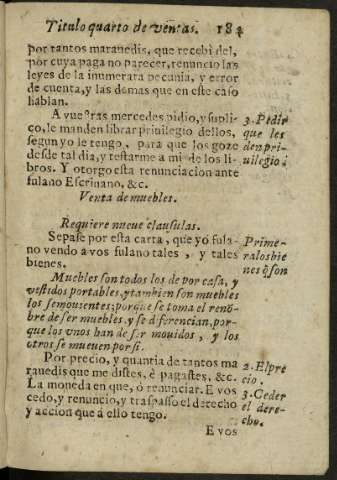 Titulo quarto de ventas. 182
por tantos marauedis, que recebi del,
por cuya paga no parecer, renuncio las
leyes de la inumerata pecunia, y error
de cuenta, y las demas que en este caso
hablan.
A vue&#x303;ras mercedes pidio, y supli-
co, le manden librar priuilegio dellos,
segun yo le tengo, para que los goze
desde tal dia, y testarme a mi de los li-
bros. Y otorgo esta renunciacion ante
fulano Escriuano, &c.
3. Pedir
que les
den pri-
uilegio.
Venta de muebles.
Requiere nueue clausulas.
Sepase por esta carta, que yo fula-
no vendo a vos fulano tales, y tales
bienes.
Prime-
ra los bie
nes q̃ son
Muebles son todos los de por casa, y
vestidos portables, y tambien son muebles
los semouientes; porque se toma el renõ-
bre de ser muebles, y se diferencian, por-
que los vnos han de ser mouidos, y los
otros se mueuen por si.
Por precio, y quantia de tantos ma
rauedis que me distes, è pagastes, &c.
La moneda en que, ò renunciar. E vos
cedo, y renuncio, y traspasso el derecho
y accion que à ello tengo.
2. El pre
cio.
3. Ceder
el dere-
cho.
E vos